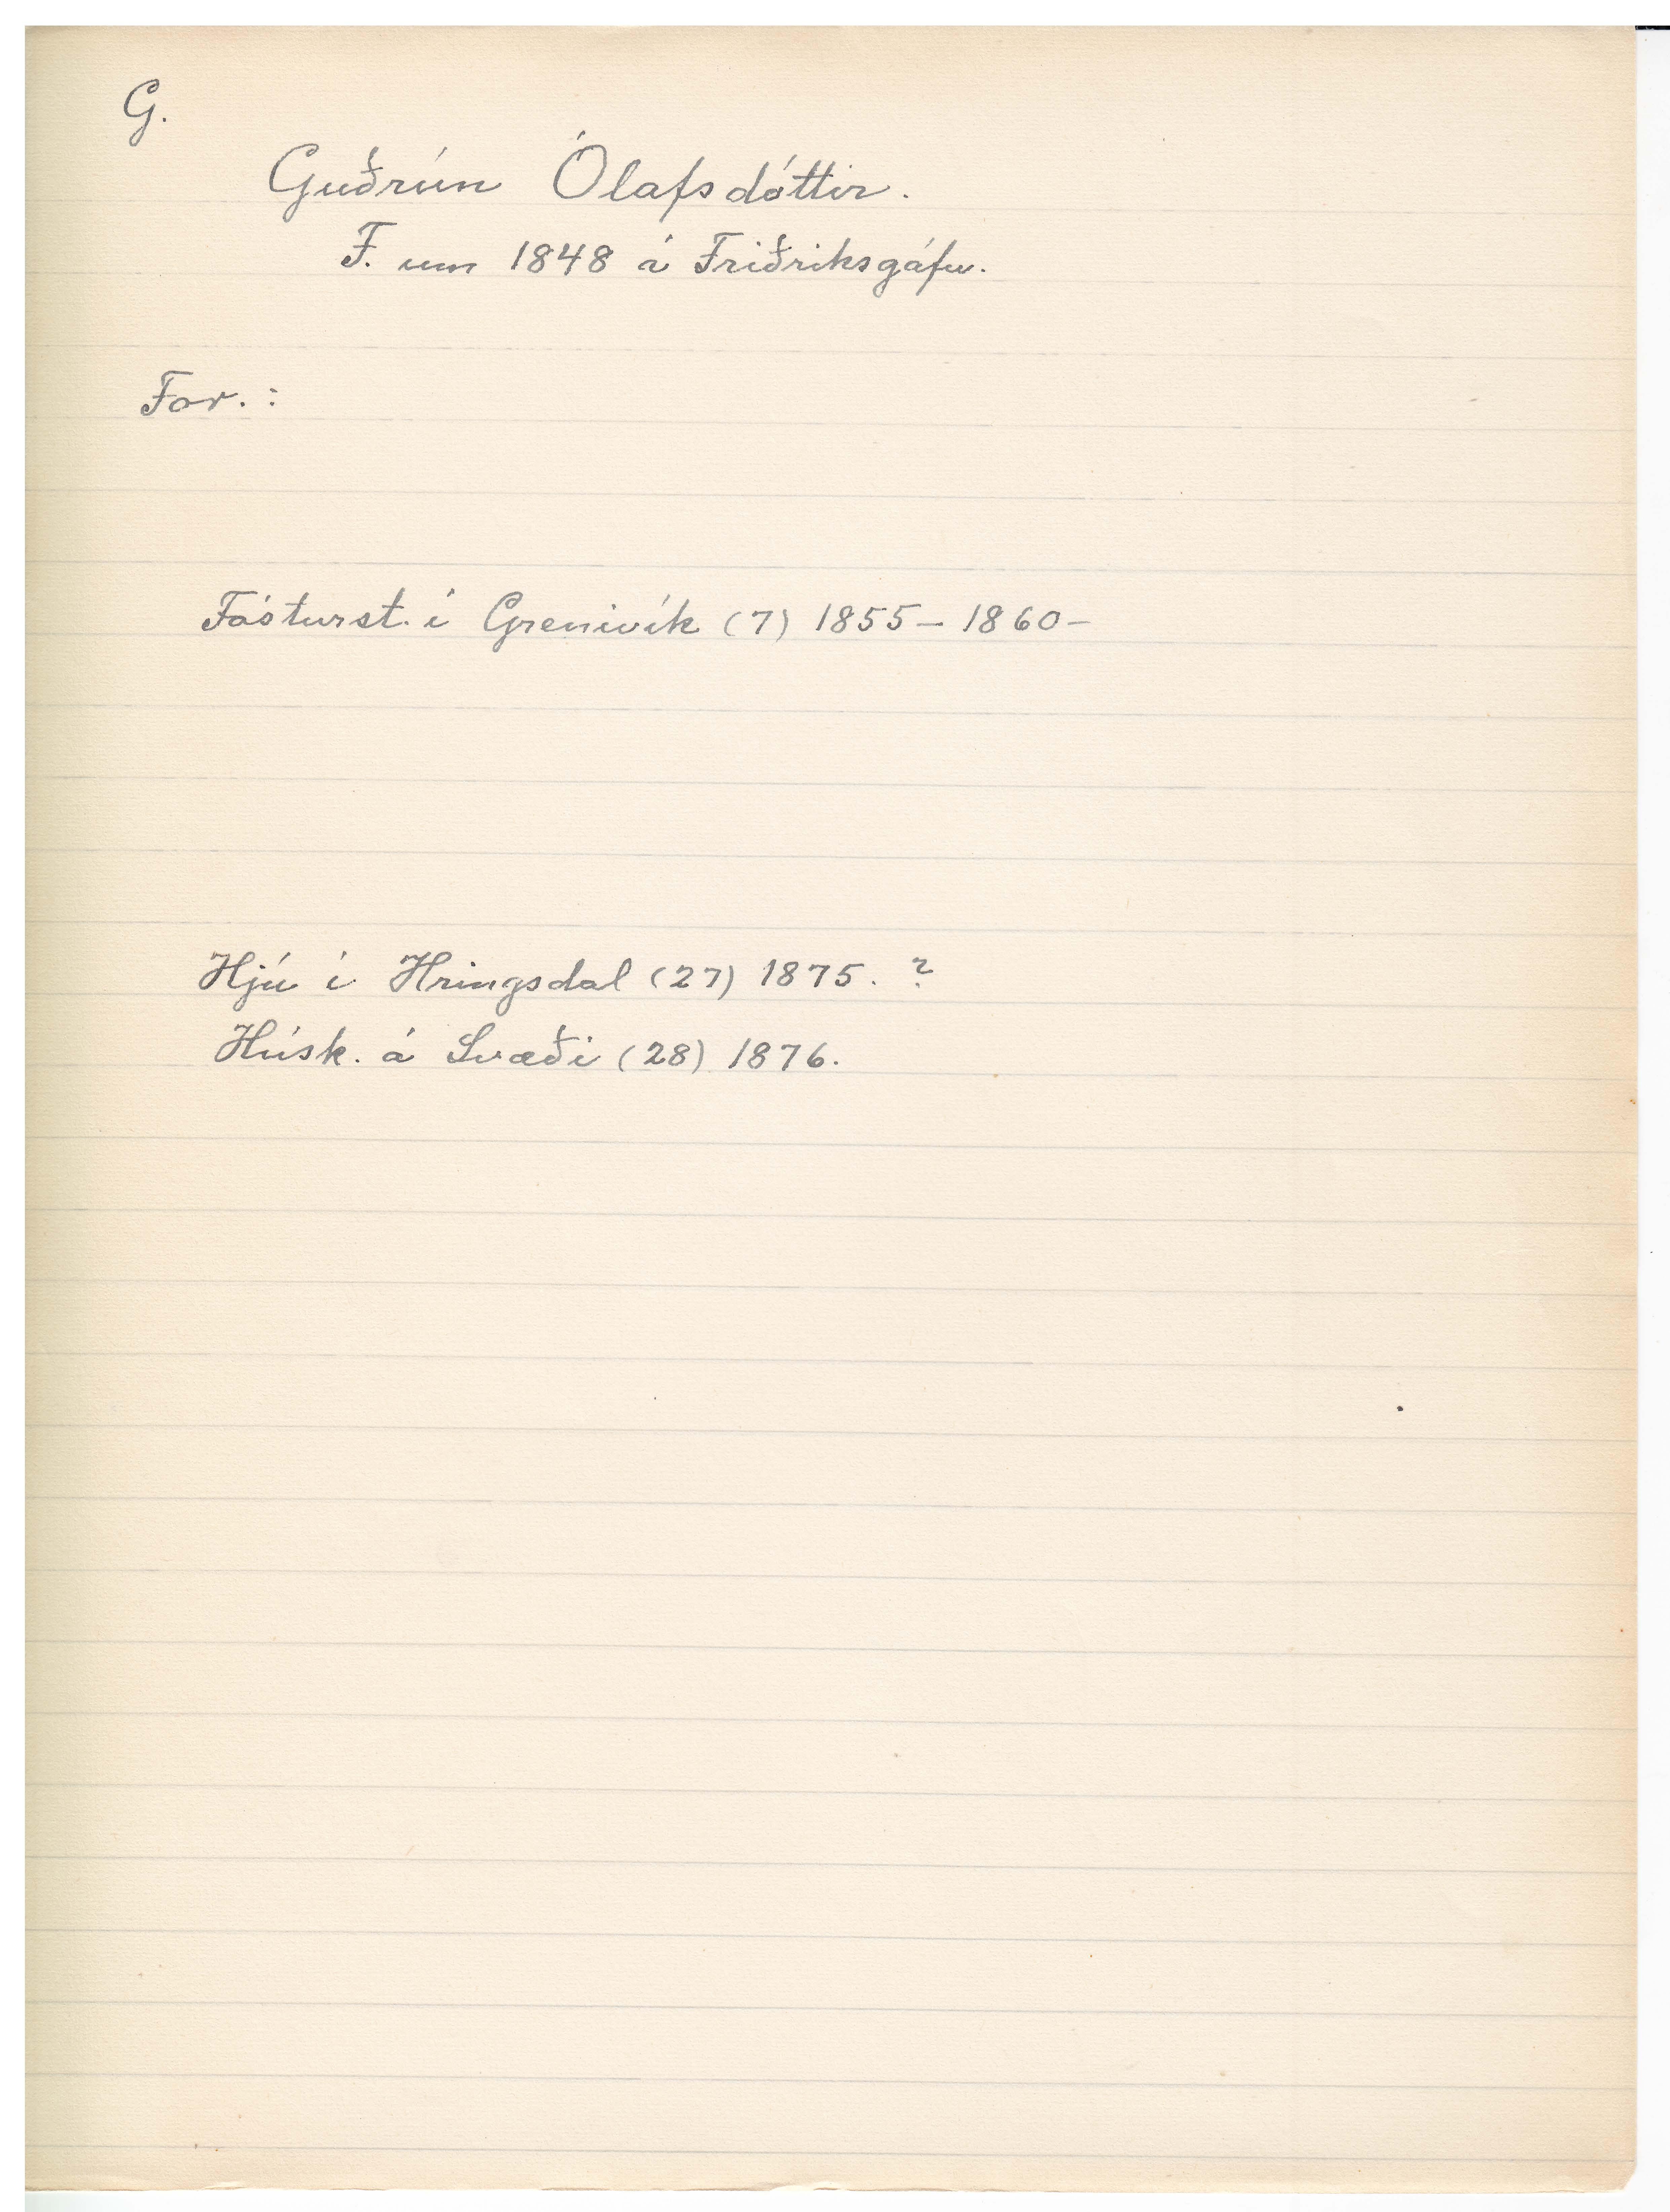 G.
Guðrún Ólafsdóttir.
F. um 1848 á Friðriksgáfu.
For. :
Fósturst. í Grenivík (7) 1855 - 1860 -
Hjú í Hringsdal (27) 1875. ?
Húsk. á Svæði (28) 1876.